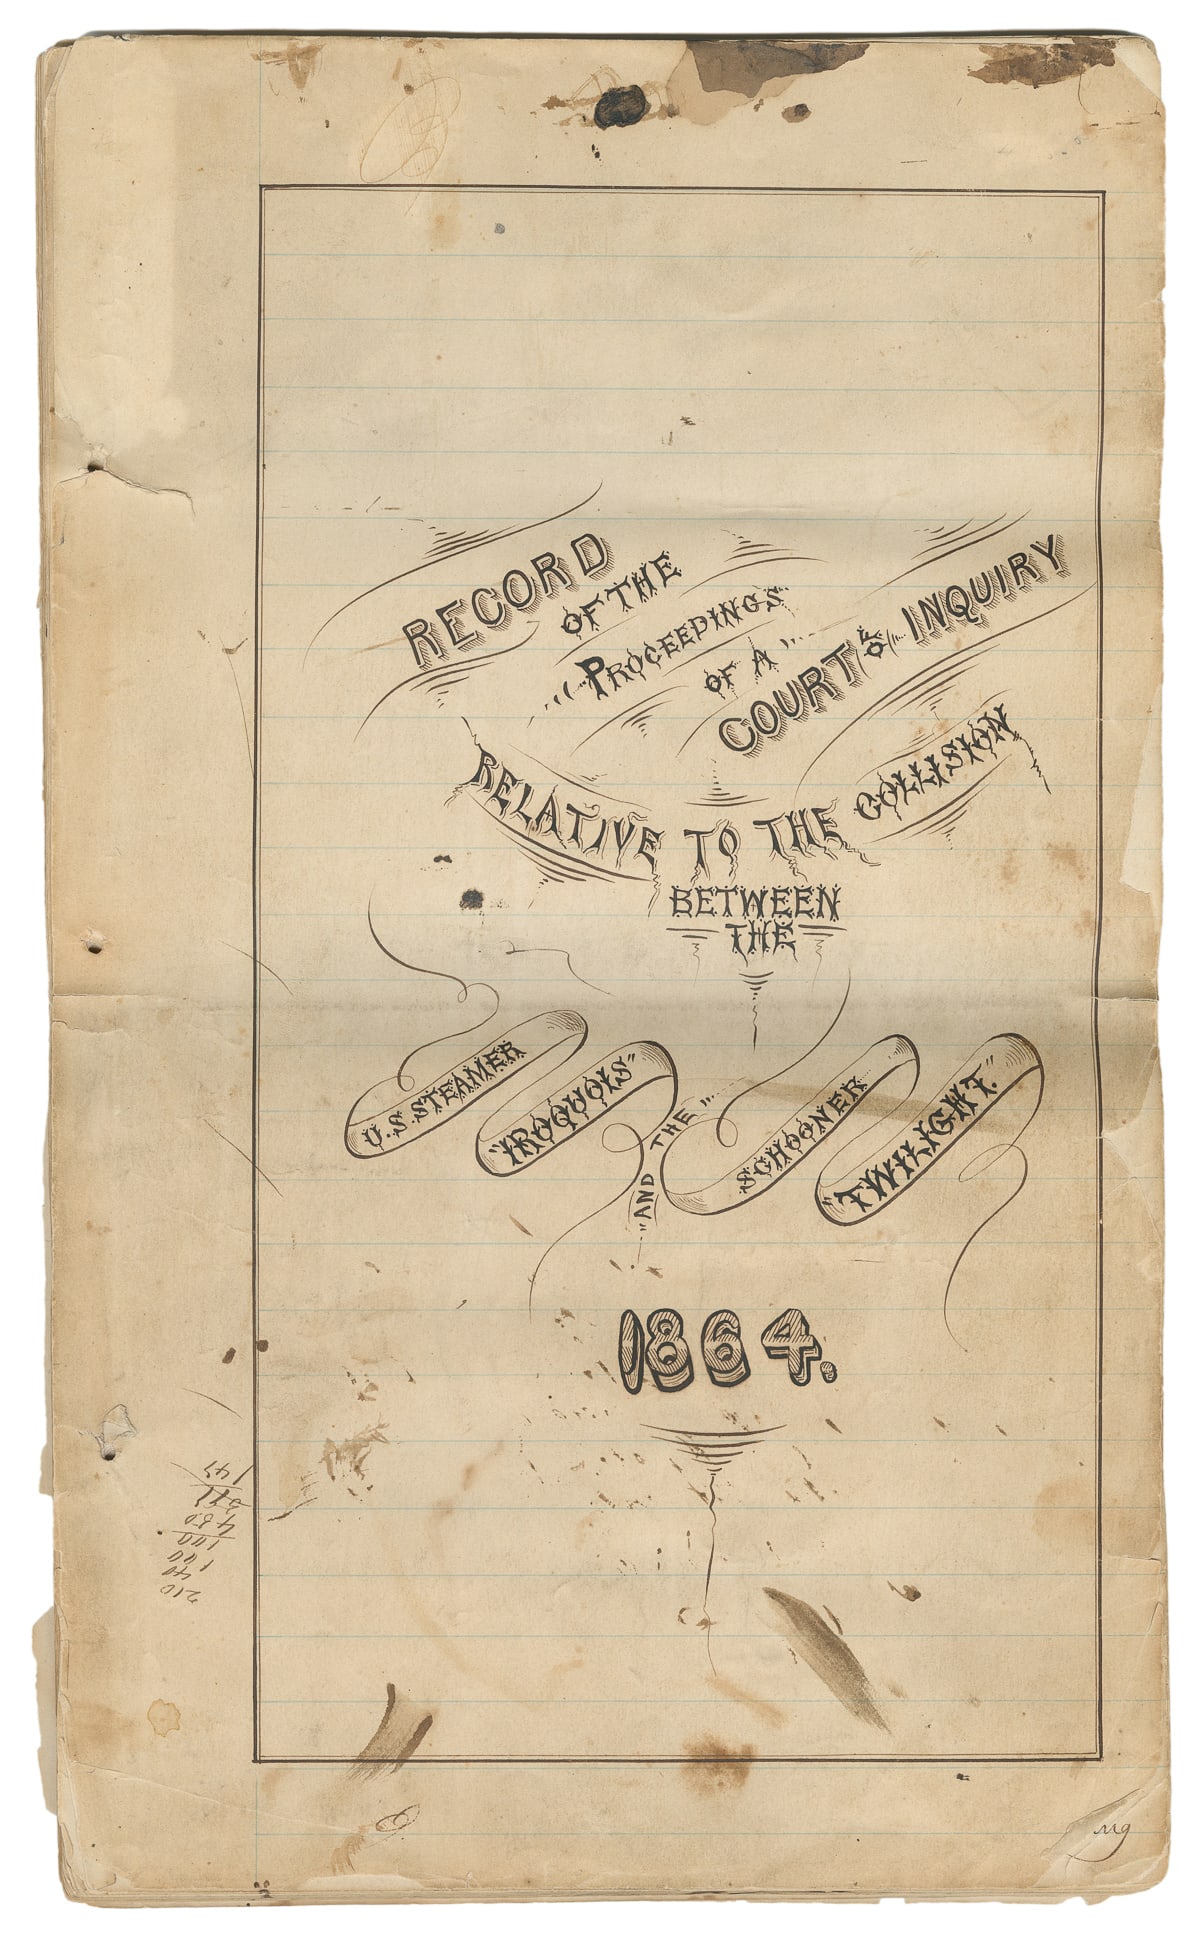 RECORD
OF THE
PROCEEDINGS
OF A
COURT OF INQUIRY
RELATIVE TO THE COLLISION
BETWEEN
THE
U.S. STEAMER
"IROQUOIS"
"AND THE"
SCHOONER
"TWILIGHT."
1864.
210
40
100
100
450